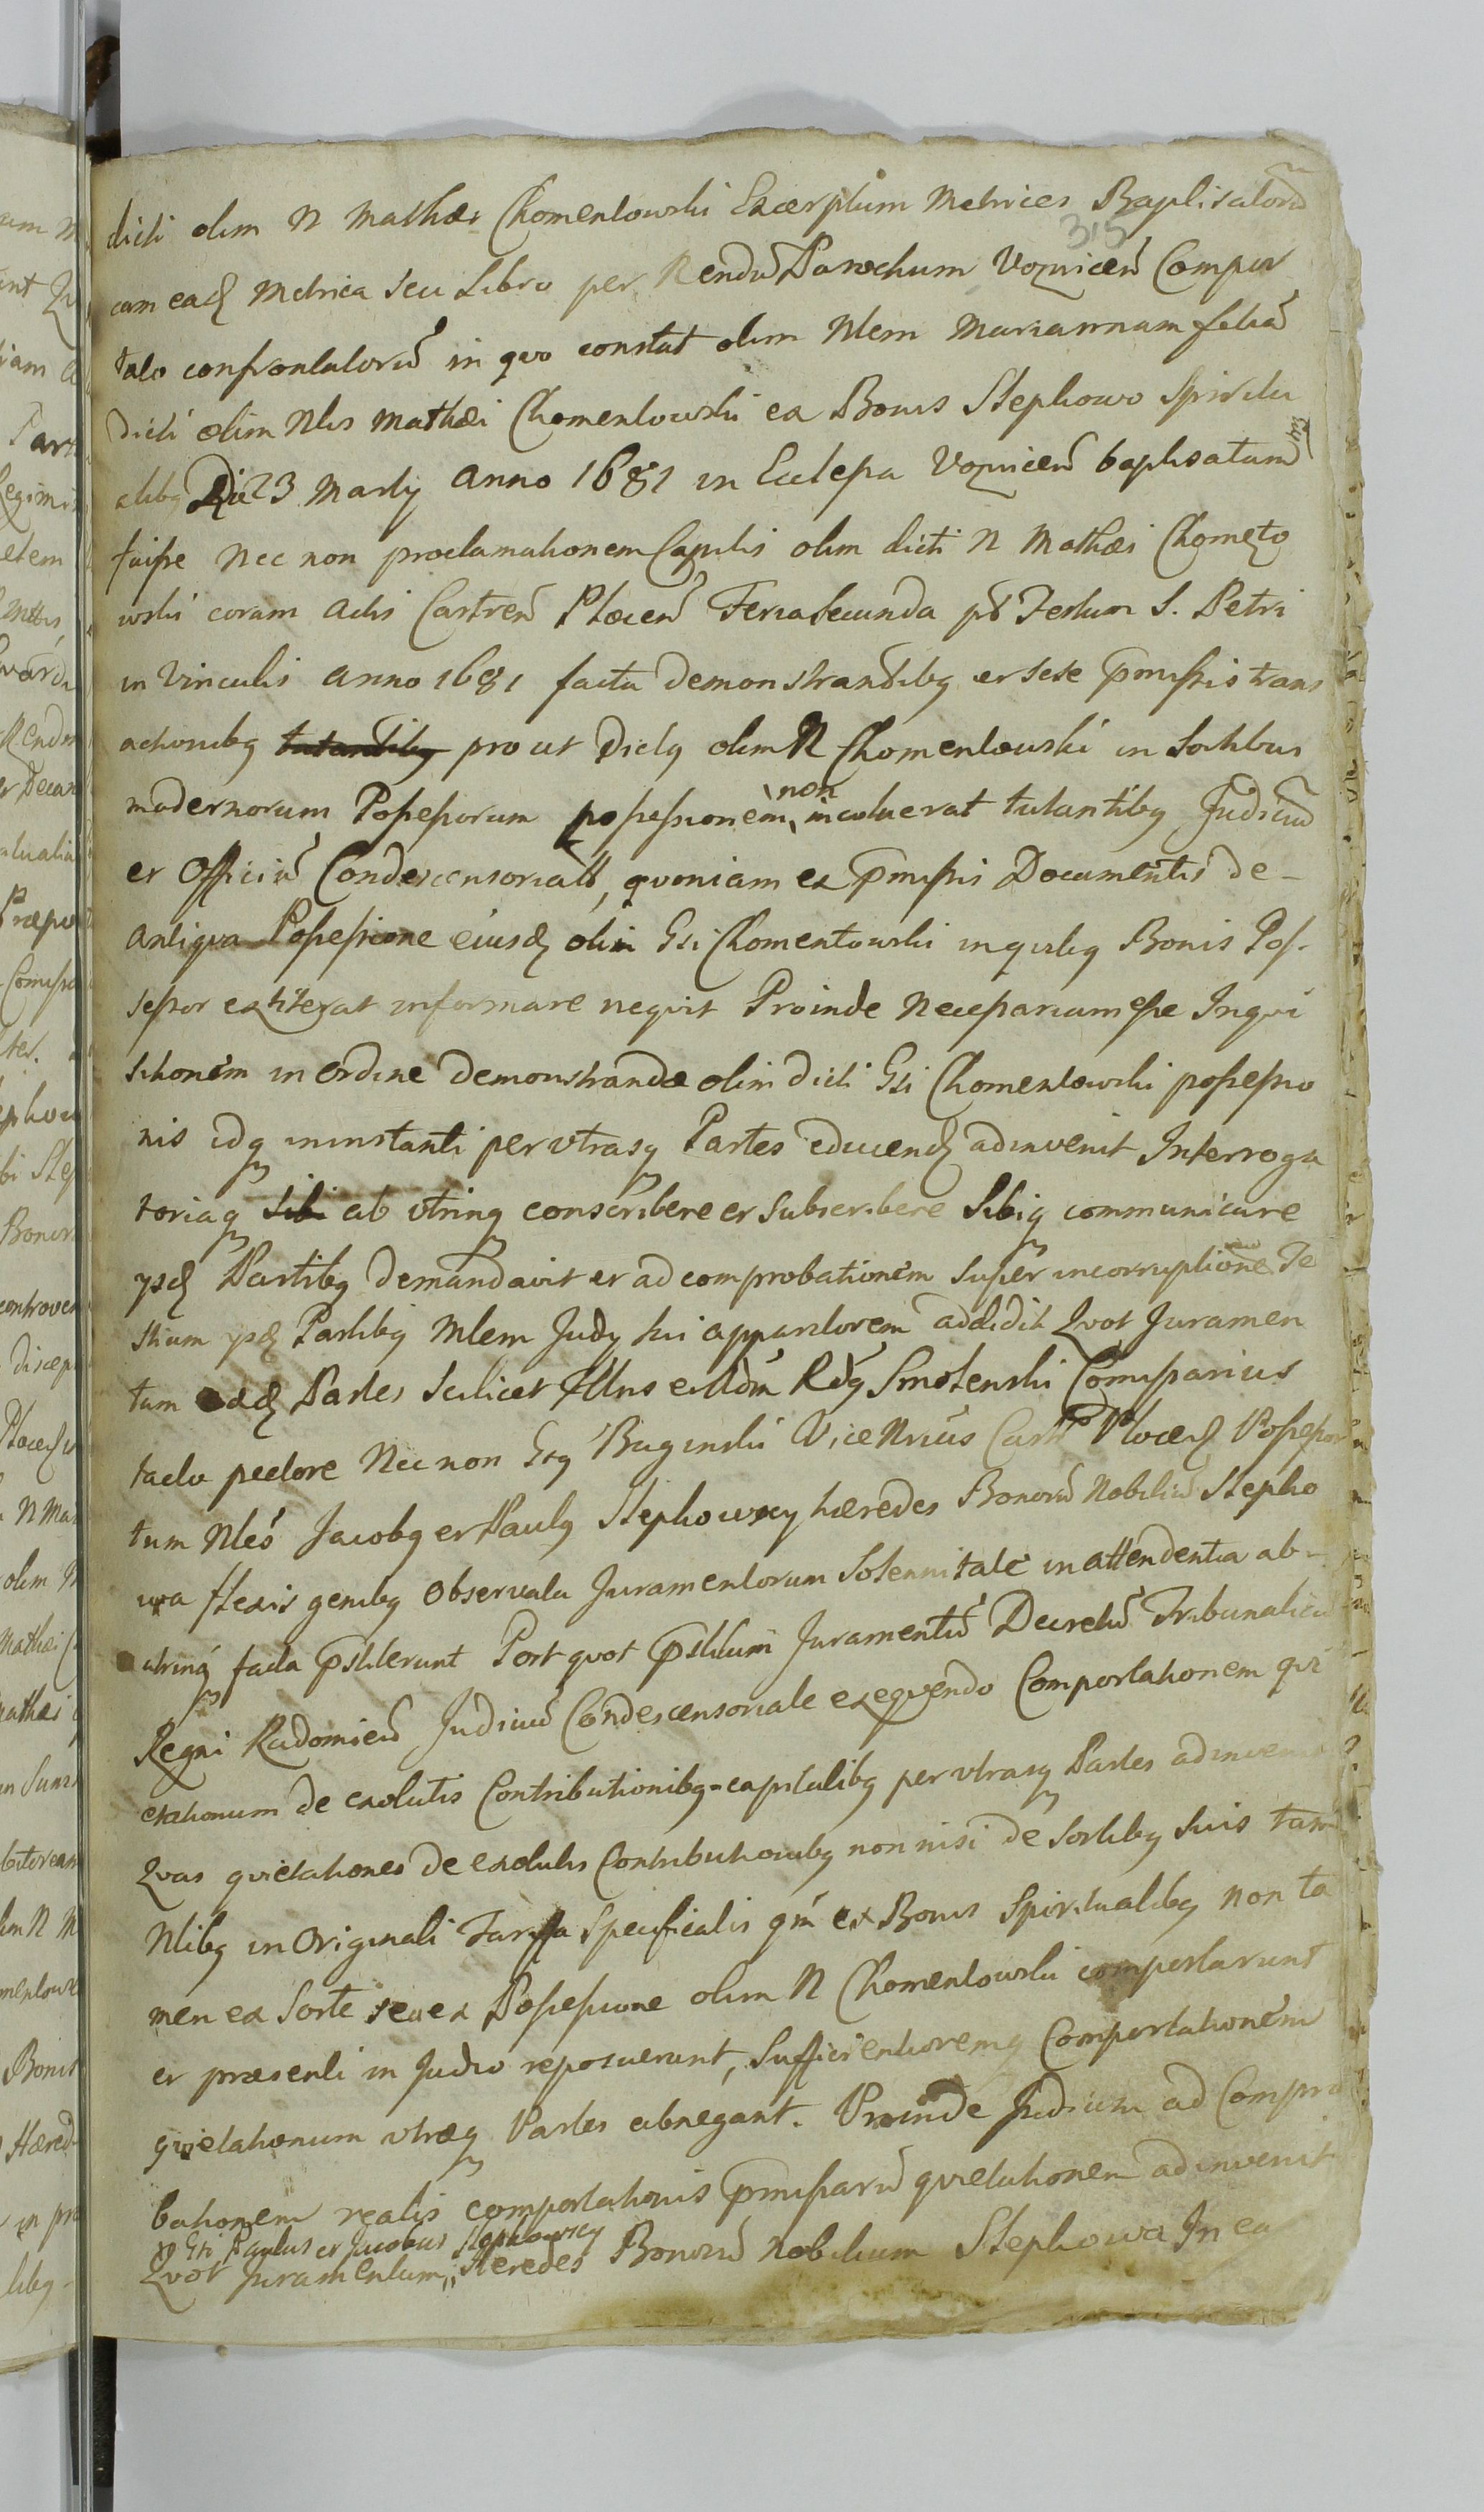 dicti olim N Mathæi Chomentowski Excerptum Metrices Baptisatorũ
315
cum eadẽ Metrica seu Libro per Rendũ Parochum Voznicen̄ Compor
tato confrontatorũ in quo constat olim Nlem Mariannam filiã
dicti olim Nlis Mathæi Chomentowski ex Bonis Stephowo Spiritu
alibꝫ Die 23 Martij Anno 1681 in Ecclesia Voznicen̄ baptisatam
fuisse Nec non proclamationem Capitis olim dicti N Mathæi Chomęto
wski coram Actis Castren̄ Plocen̄ Feria secunda pt Festum S. Petri
in Vinculis Anno 1681 facta demonstrandibꝫ et sese p̄missis trans
actionibꝫ prout Dictꝫ olim N Chomentowski in Sortibus
modernorum Possessorum possessionem non incoluerat tutantibꝫ Judiciũ
et Officiũ Condescensoriale, quoniam ex p̄missis Documentis de-
Antiqua Possessione eiusdẽ olim Gsi Chomentowski in quibꝫ Bonis Pos-
sessor extiterat informare nequit Proinde Necessarium esse Inqui
sitionem in ordine demonstrandæ olim dicti Gsi Chomentowski possessio
nis idqꝫ in instanti per vtrasqꝫ Partes educendẽ adinvenit Interroga
toriaqꝫ sibi ab vtrinqꝫ conscribere et Subscribere Sibiqꝫ communicare
ysdẽ Partibꝫ demandavit et ad comprobationem super incorruptione Te
stium ysdẽ Partibꝫ Mlem Judy sui apparitorem addidit Quot Juramen
tum eædẽ Partes scilicet Illris et Adm̃ Rdꝫ Smolenski Comissarius
tacto pectore Nec non Gsꝫ Buginski Vice Nrius Castr Plocen̄ Possesor
tum Nles Jacobꝫ et Paulꝫ Stephowscy hæredes Bonorũ Nobiliũ Stepho
wa flexis genibꝫ Observata Juramentorum Solennitate in attendentia ab-
utrinqꝫ facta p̄stiterunt Post quot p̄stitum Juramentũ Decretũ Tribunaliciũ
Regni Radomien̄ Judiciũ Condescensoriale exequendo Comportationem qui
etationum de exolutis Contributionibꝫ capitalibꝫ per vtrasqꝫ Partes adinvenit
Quas quietationes de exolutis Contributionibꝫ non nisi de Sortibꝫ suis tam
Nlibꝫ in Originali Tariffa Specificatis qm̃ ex Bonis Spiritualibꝫ non ta
men ex Sorte seu ex Possessione olim N Chomentowski comportarunt
et præsenti in Judio reposuerunt, Sufficientioremqꝫ Comportationem
quietationum vtræqꝫ Partes abnegant. Proinde Judicium ad Compro
bationem realis comportationis p̄missarũ quietationem adinvenit
Gsi Paulus et Jacobus Stephowscy
Quot Juramentum Heredes Bonorũ Nobilium Stephowa In ea